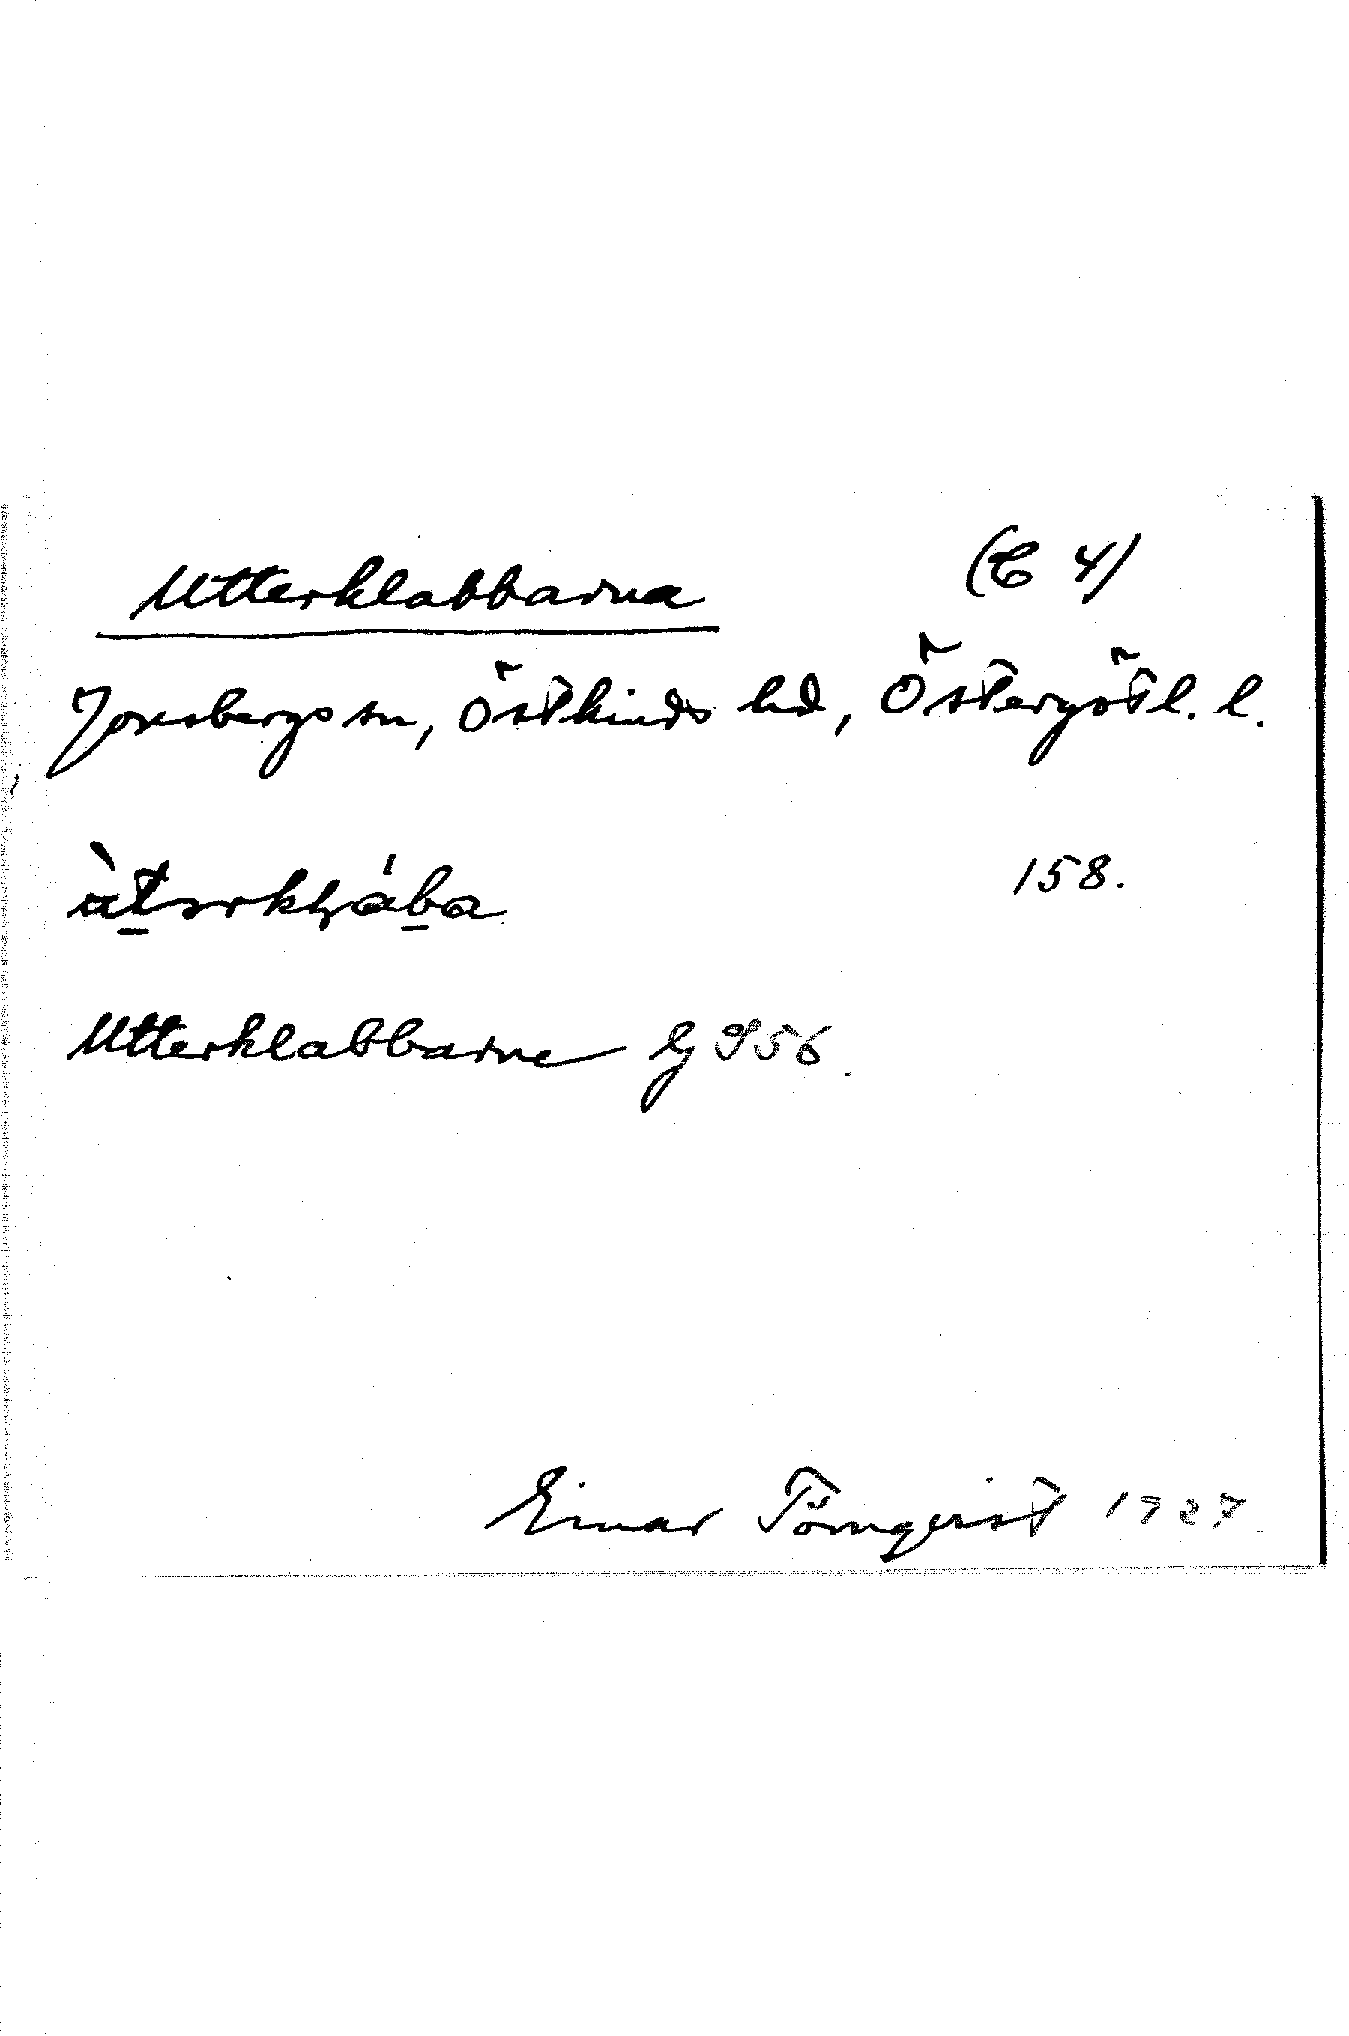 Utterklabbarna (C 4)
Jonsbergs sn, Östkinds hd, Östergötl. l.
158.
Utterklabbarne Lg 956.
Einar Törnqvist 1927